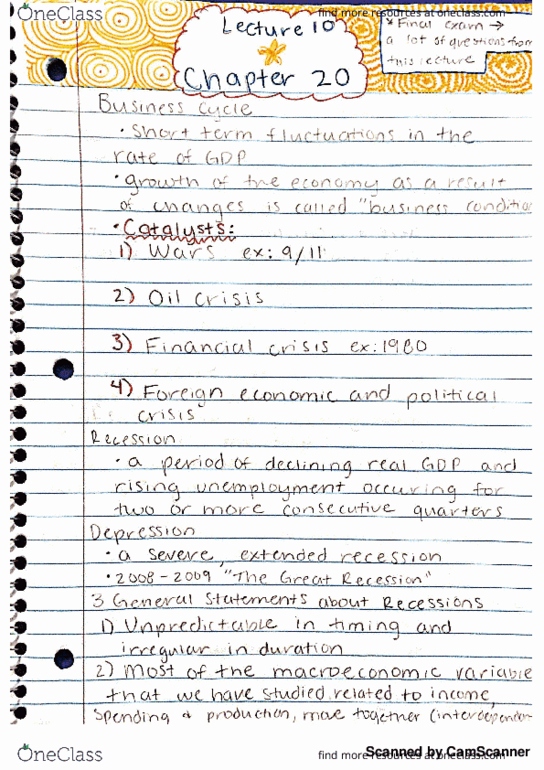 OneClass
find more resources at oneclass.com
Lecture 10
* Final exam →
a lot of questions from
this lecture
Chapter 20
Business Cycle
• Short term fluctuations in the
rate of GDP
• growth of the economy as a result
of changes is called "business conditio
• Catalysts:
1) Wars ex: 9/11
2) Oil crisis
3) Financial crisis ex: 1980
4) Foreign economic and political
crisis
Recession
• a period of declining real GDP and
rising unemployment occuring for
two or more consecutive quarters
Depression
• a severe, extended recession
• 2008-2009 "The Great Recession"
3 General Statements about Recessions
1) Unpredictable in timing and
irregular in duration
2) Most of the macroeconomic variable
that we have studied related to income,
spending & production, move together (interdependen
OneClass
find more resources at oneclass.com
Scanned by CamScanner